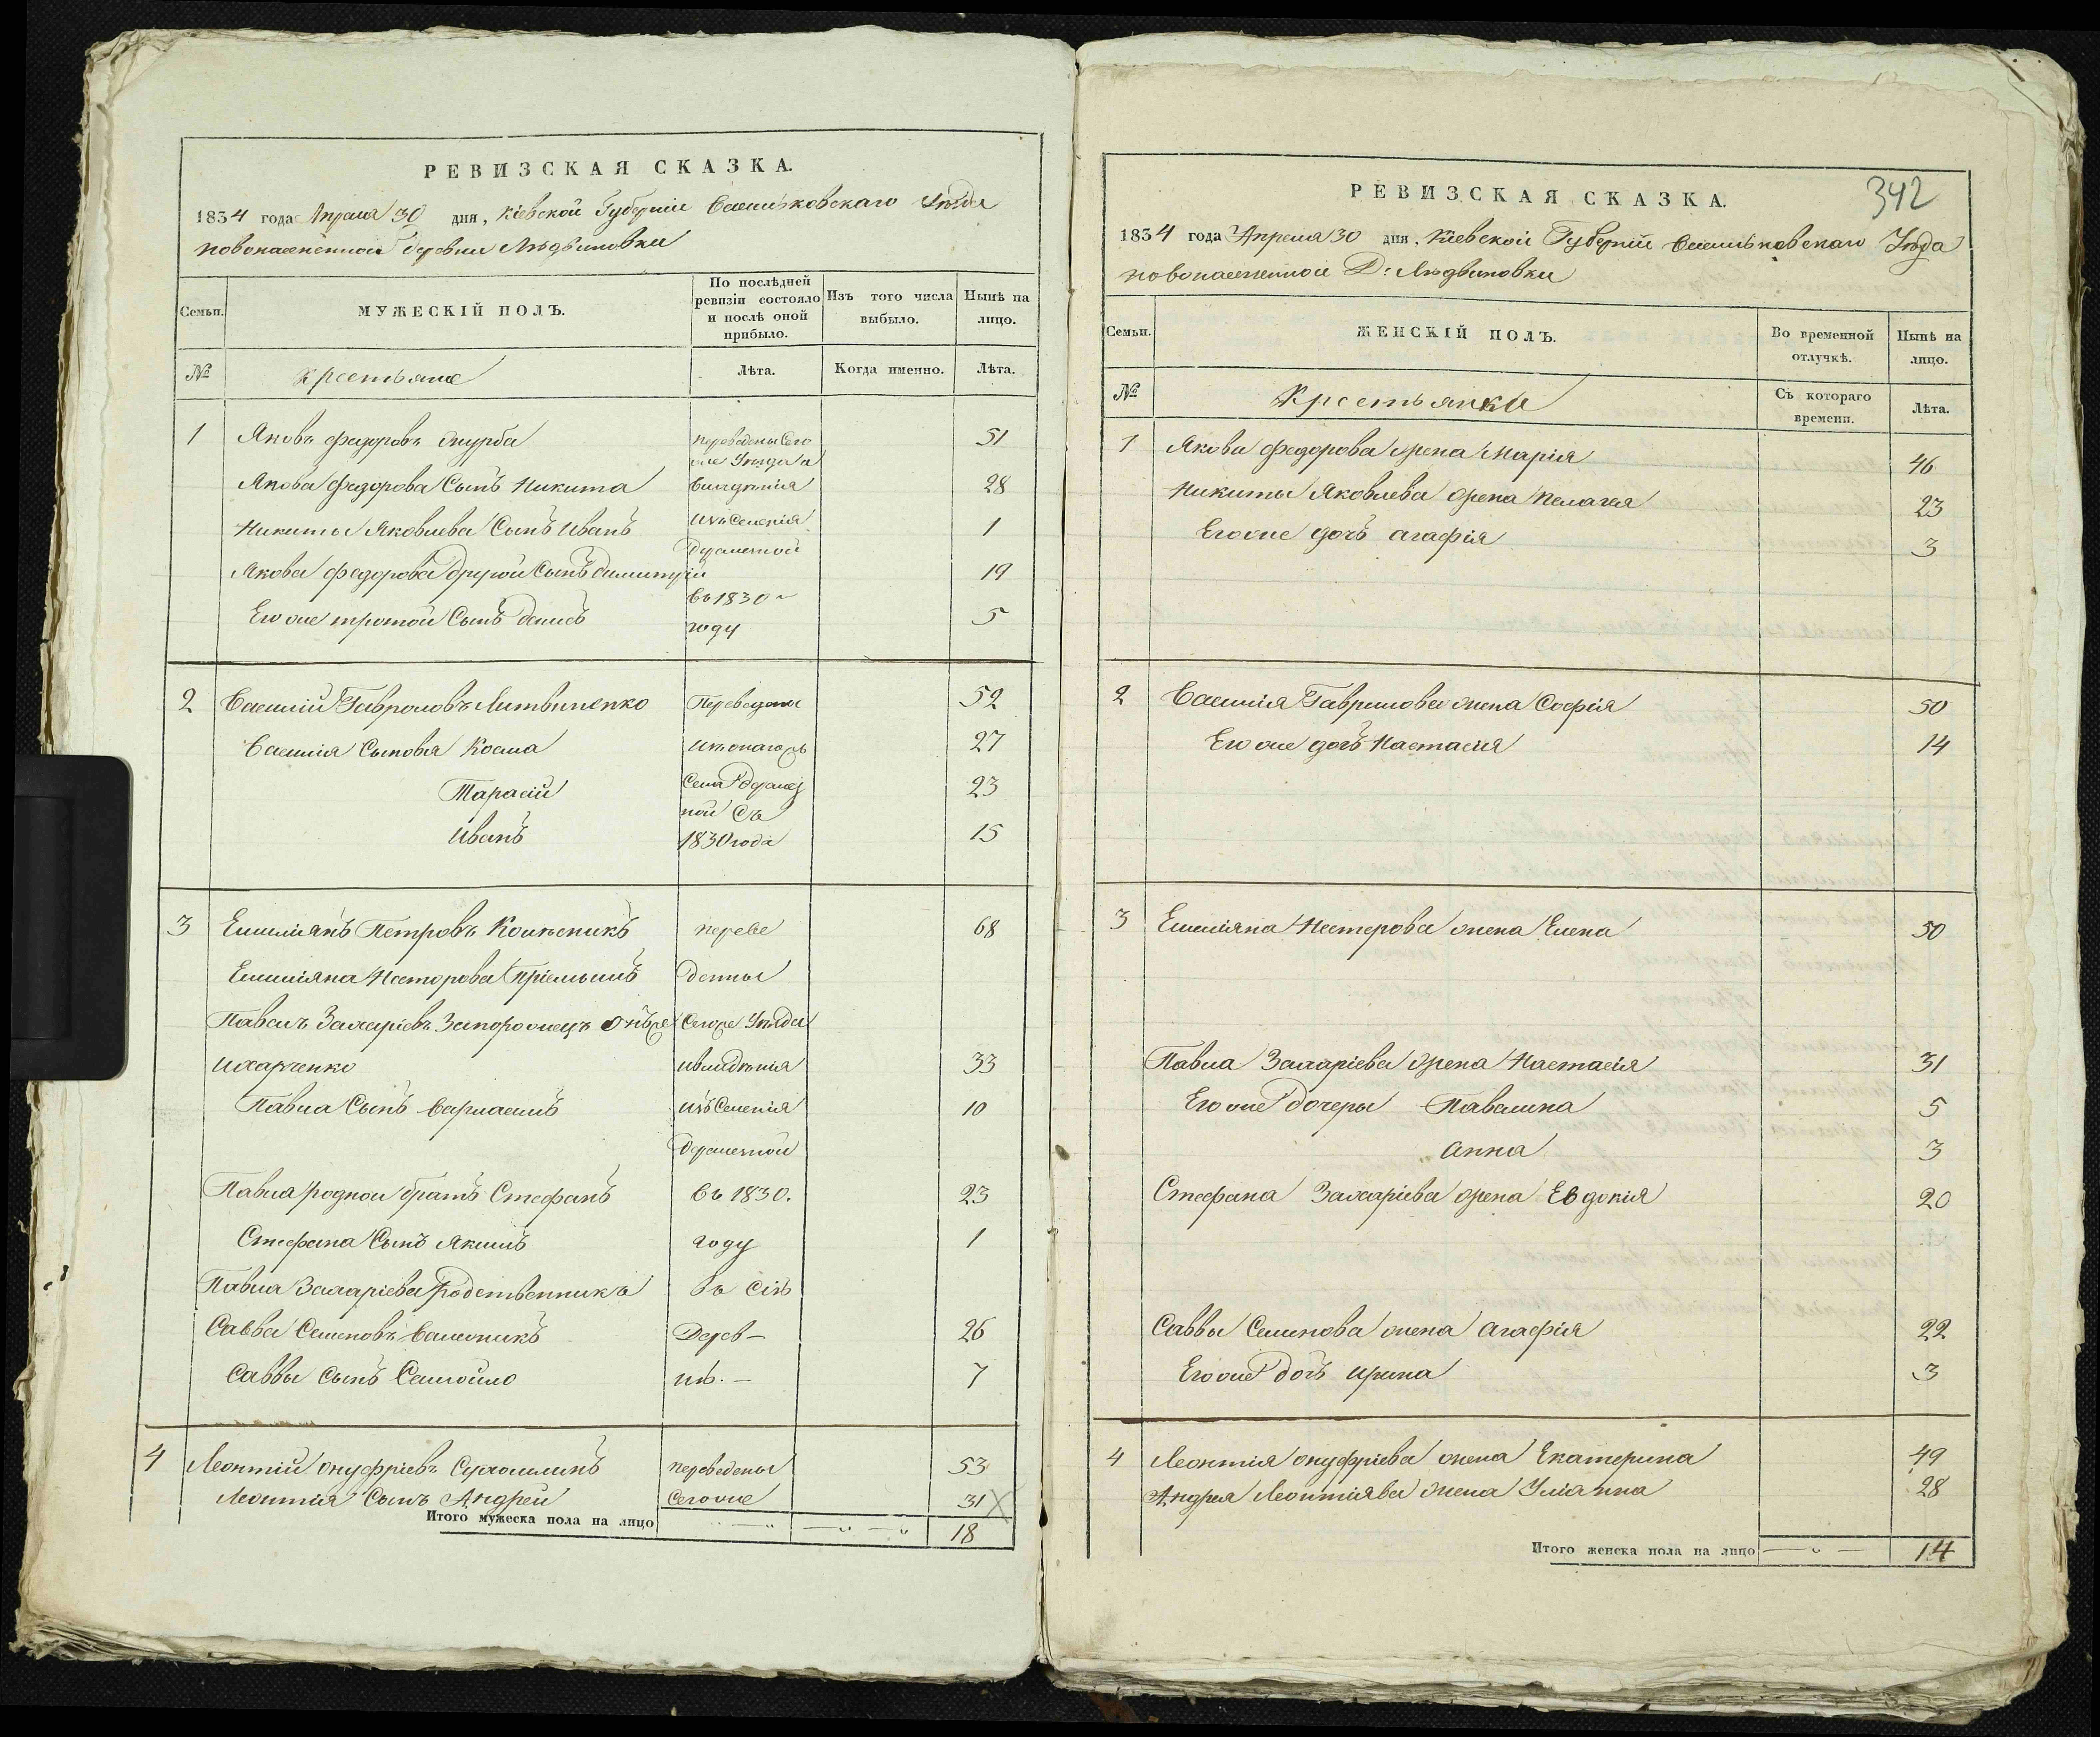 РЕВИЗСКАЯ СКАЗКА.
1834 года Апреля 30 дня, Кіевской Губерніи Васильковскаго Уѣзда
новонаселенной деревни Людвиновки
Семьи. МУЖЕСКІЙ ПОЛЪ. По послѣдней ревизіи состояло и послѣ оной прибыло. Изъ того числа выбыло. Нынѣ на лицо.
№ Крестьяне Лѣта. Когда именно. Лѣта.
1 Яковъ Федоровъ переведены сего 51
же Уѣзда и
Якова Федорова Сынъ Никита владѣнія 28
Никиты Яковлева Сынъ Иванъ изъ Селенія 1
Якова Федорова другой Сынъ Димитрій 19
въ 1830
Его же третой Сынъ Денисъ году 5
2 Василій Гавриловъ Литвиненко Переведены 52
Василія Сыновья Косма 27
Тарасій Села 23
ной съ
Иванъ 1830 года 15
3 Емиліянъ Петровъ переве 68
Емиліяна Нестерова пріемышъ дены
Павелъ Захаріевъ Запорожецъ Сегоже Уѣзда
Ихарченко ивладѣнія 33
Павла Сынъ Варлаамъ изъ Селенія 10
Павла родной братъ Стефанъ въ 1830. 23
Стефана Сынъ Якимъ году 1
Павла Захаріева родственникъ въ сію
Савва Семеновъ Дерев- 26
Саввы Сынъ Самойло нѣ. - 7
4 Леонтій Онуфріевъ переведены 53
Леонтія Сынъ Андрей Сегоже 31
Итого мужеска пола на лицо 18
РЕВИЗСКАЯ СКАЗКА. 342
1834 года Апреля 30 дня, Кіевской Губерніи Васильковскаго Уѣзда
новонаселенной Д: Людвиновки
Семьи. ЖЕНСКІЙ ПОЛЪ. Во временной отлучкѣ. Нынѣ на лицо.
№ Крестьянки Съ котораго времени. Лѣта.
1 Якова Федорова жена Марія 46
Никиты Яковлева жена Пелагея 23
Егоже дочъ Агафія 3
2 Василія Гаврилова жена Софія 50
Его же дочъ Настасія 14
3 Емиліяна Нестерова жена Елена 50
Павла Захаріева жена Настасія 31
Егоже дочеры Павлина 5
Анна 3
Стефана Захаріева жена Евдокія 20
Саввы Семенова жена Агафія 22
Егоже дочъ Ирина 3
4 Леонтія Онуфріева жена Екатерина 49
Андрея Леонтіява жена Уліанна 28
Итого женска пола на лицо 14